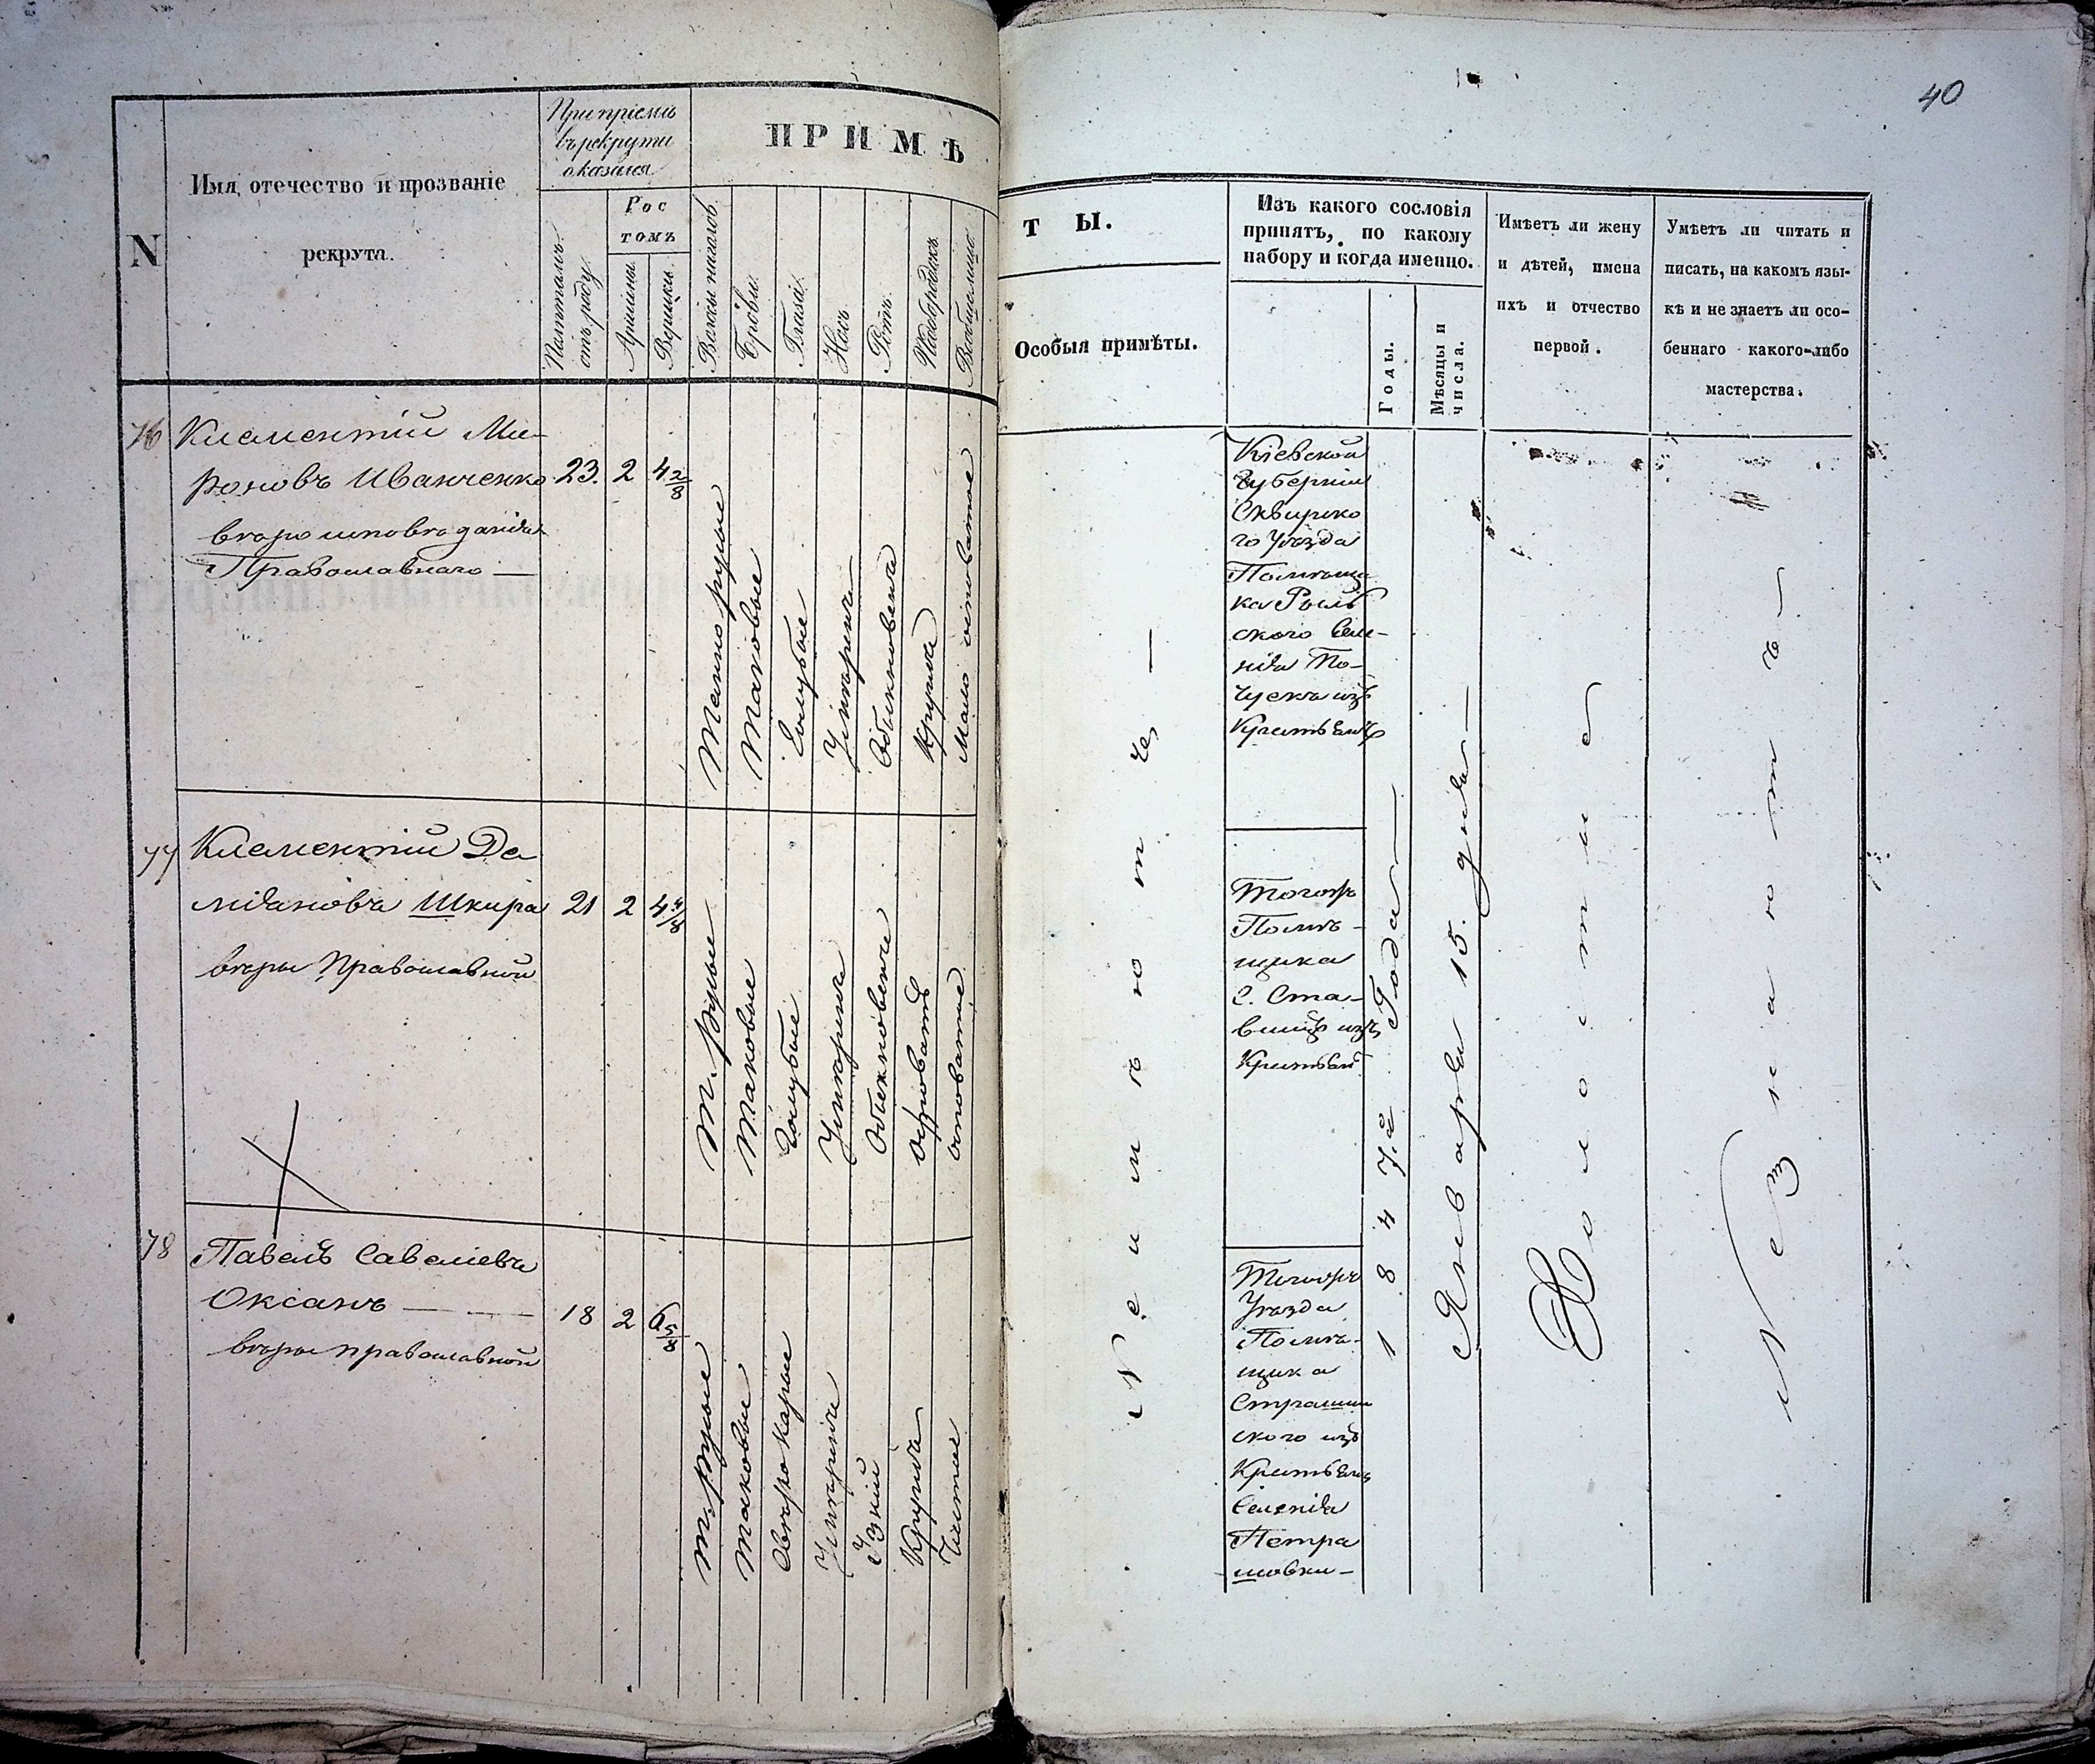 40
N
Имя, отечество и прозваніе
рекрута.
При пріемѣ
въ рекруты
оказался
Полнталъ
отъ роду.
Рос
томъ
Аршины.
Вершки.
ПРИМѢ
Волосы на голов.
Брови.
Глаза.
Носъ.
Ротъ.
Подбородокъ.
Вообще лицо.
ТЫ.
Особыя примѣты.
Изъ какого сословія
принятъ, по какому
набору и когда именно.
Годы.
Мѣсяцы и
числа.
Имѣетъ ли жену
и дѣтей, имена
ихъ и отчество
первой.
Умѣетъ ли читать и
писать, на какомъ язы-
кѣ и не знаетъ ли осо-
беннаго какого-либо
мастерства.
76
Климентій Ми-
роновъ Иванченко
вѣроисповѣданія
Православнаго —
23. 2 4 2/8
Темно русые
Таковые
Голубые
Умѣренъ
Обыкновенъ
Кругла
Мало осповатое
Кіевской
Губерніи
Сквирско
го Уѣзда
Помѣщи
ка Рыль
ского Селе-
нія То-
чуска изъ
Крестьянъ
77
Климентій Да
міановъ Шкира
вѣры Православной
21 2 4 4/8
т. Русые
Таковые
Голубые
Умѣренъ
Обыкновенъ
осповатое
Тогожъ
Помѣ-
щика
С. Ста-
вищъ изъ
Крестьянъ
78
Павелъ Савеліевъ
Оксанъ — —
вѣры православной
18 2 6 5/8
т. Русые
таковые
Свѣтло карые
Умѣренъ
Узкій
Кругла
Чистое
Тогожъ
Уѣзда
Помѣ-
щика
Страшин
ского изъ
Крестьянъ
Селенія
Петра
шовки —
Неимѣютъ —
1847.го Года —
Января 15. дня —
Холостые
Незнаютъ —